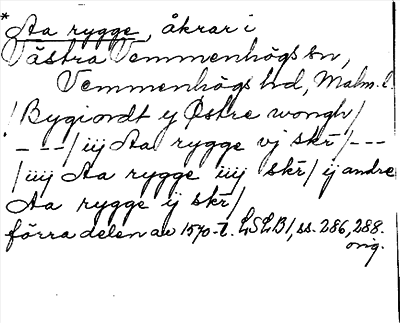 * Aa rygge, åkrar i
Västra Vemmenhögs sn,
Vemmenhögs hd, Malm. l.
/Bygiordt y Østre wongh/
- - -/ iij Aa rygge vj skr̄/ - - -
/iiij Aa rygge iiij skr̄/ ij andre
Aa rygge ij skr̄/
förra delen av 1570-t. LSLB1, ss. 286, 288.
orig.